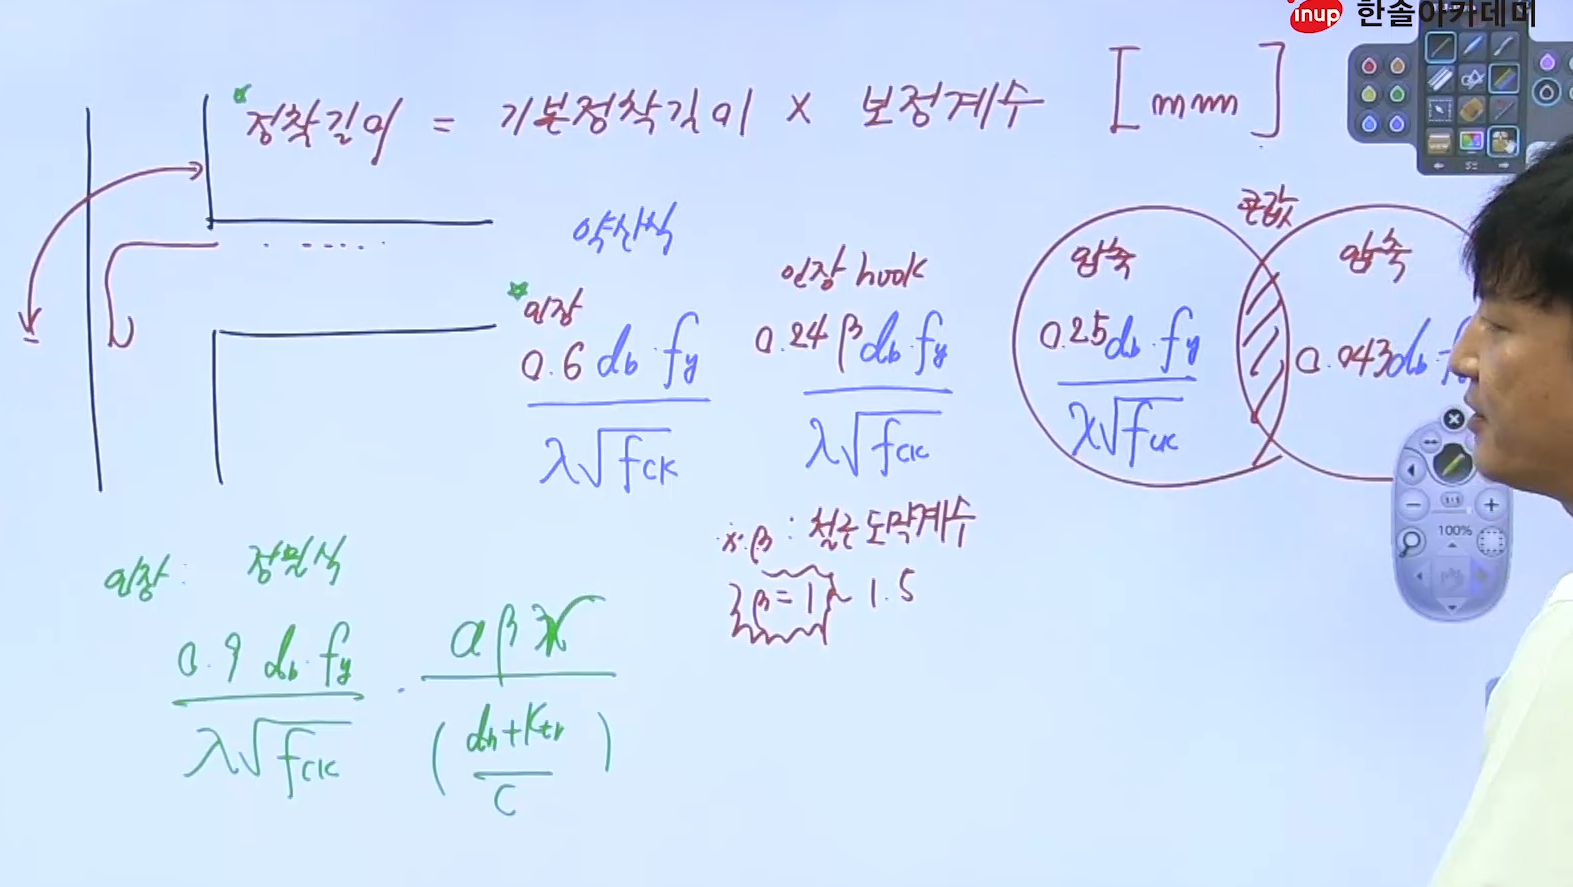 inup 한솔아카데미
정착길이 = 기본정착길이 × 보정계수 [mm]
약산식
인장
0.6 db·fy
λ√fck
인장 hook
0.24 β db·fy
λ√fck
큰값
압축
0.25 db·fy
λ√fck
압축
0.043 db·f
※ β : 철근도막계수
β = 1 ~ 1.5
인장 : 정밀식
0.9 db·fy
λ√fck
·
α β γ
(db + Ktr)
c
100%